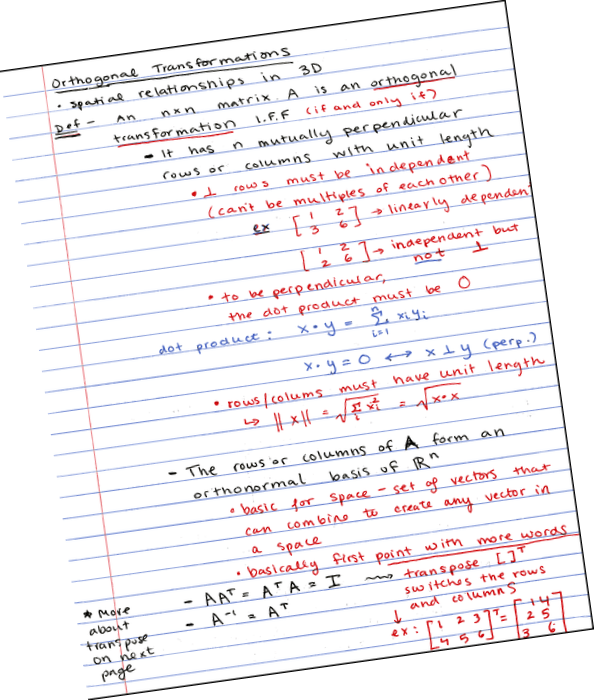 Orthogonal Transformations
• spatial relationships in 3D
Def - An nxn matrix A is an orthogonal
transformation I.F.F (if and only if)
- It has n mutually perpendicular
rows or columns with unit length
• ⊥ rows must be independent
(can't be multiples of each other)
ex [1 2
3 6] → linearly dependent
[1 2
2 6] → independent but
not ⊥
• to be perpendicular,
the dot product must be 0
dot product: x • y = n Σ i=1 xiyi
x • y = 0 ↔ x ⊥ y (perp.)
• rows/colums must have unit length
↳ ||x|| = √Σi xi² = √x•x
- The rows or columns of A form an
orthonormal basis of ℝⁿ
• basic for space - set of vectors that
can combine to create any vector in
a space
• basically first point with more words
- AAᵀ = AᵀA = I ⟿ transpose [ ]ᵀ
switches the rows
and columns
- A⁻¹ = Aᵀ
ex: [1 2 3
4 5 6]ᵀ = [1 4
2 5
3 6]
* More
about
transpose
on next
page